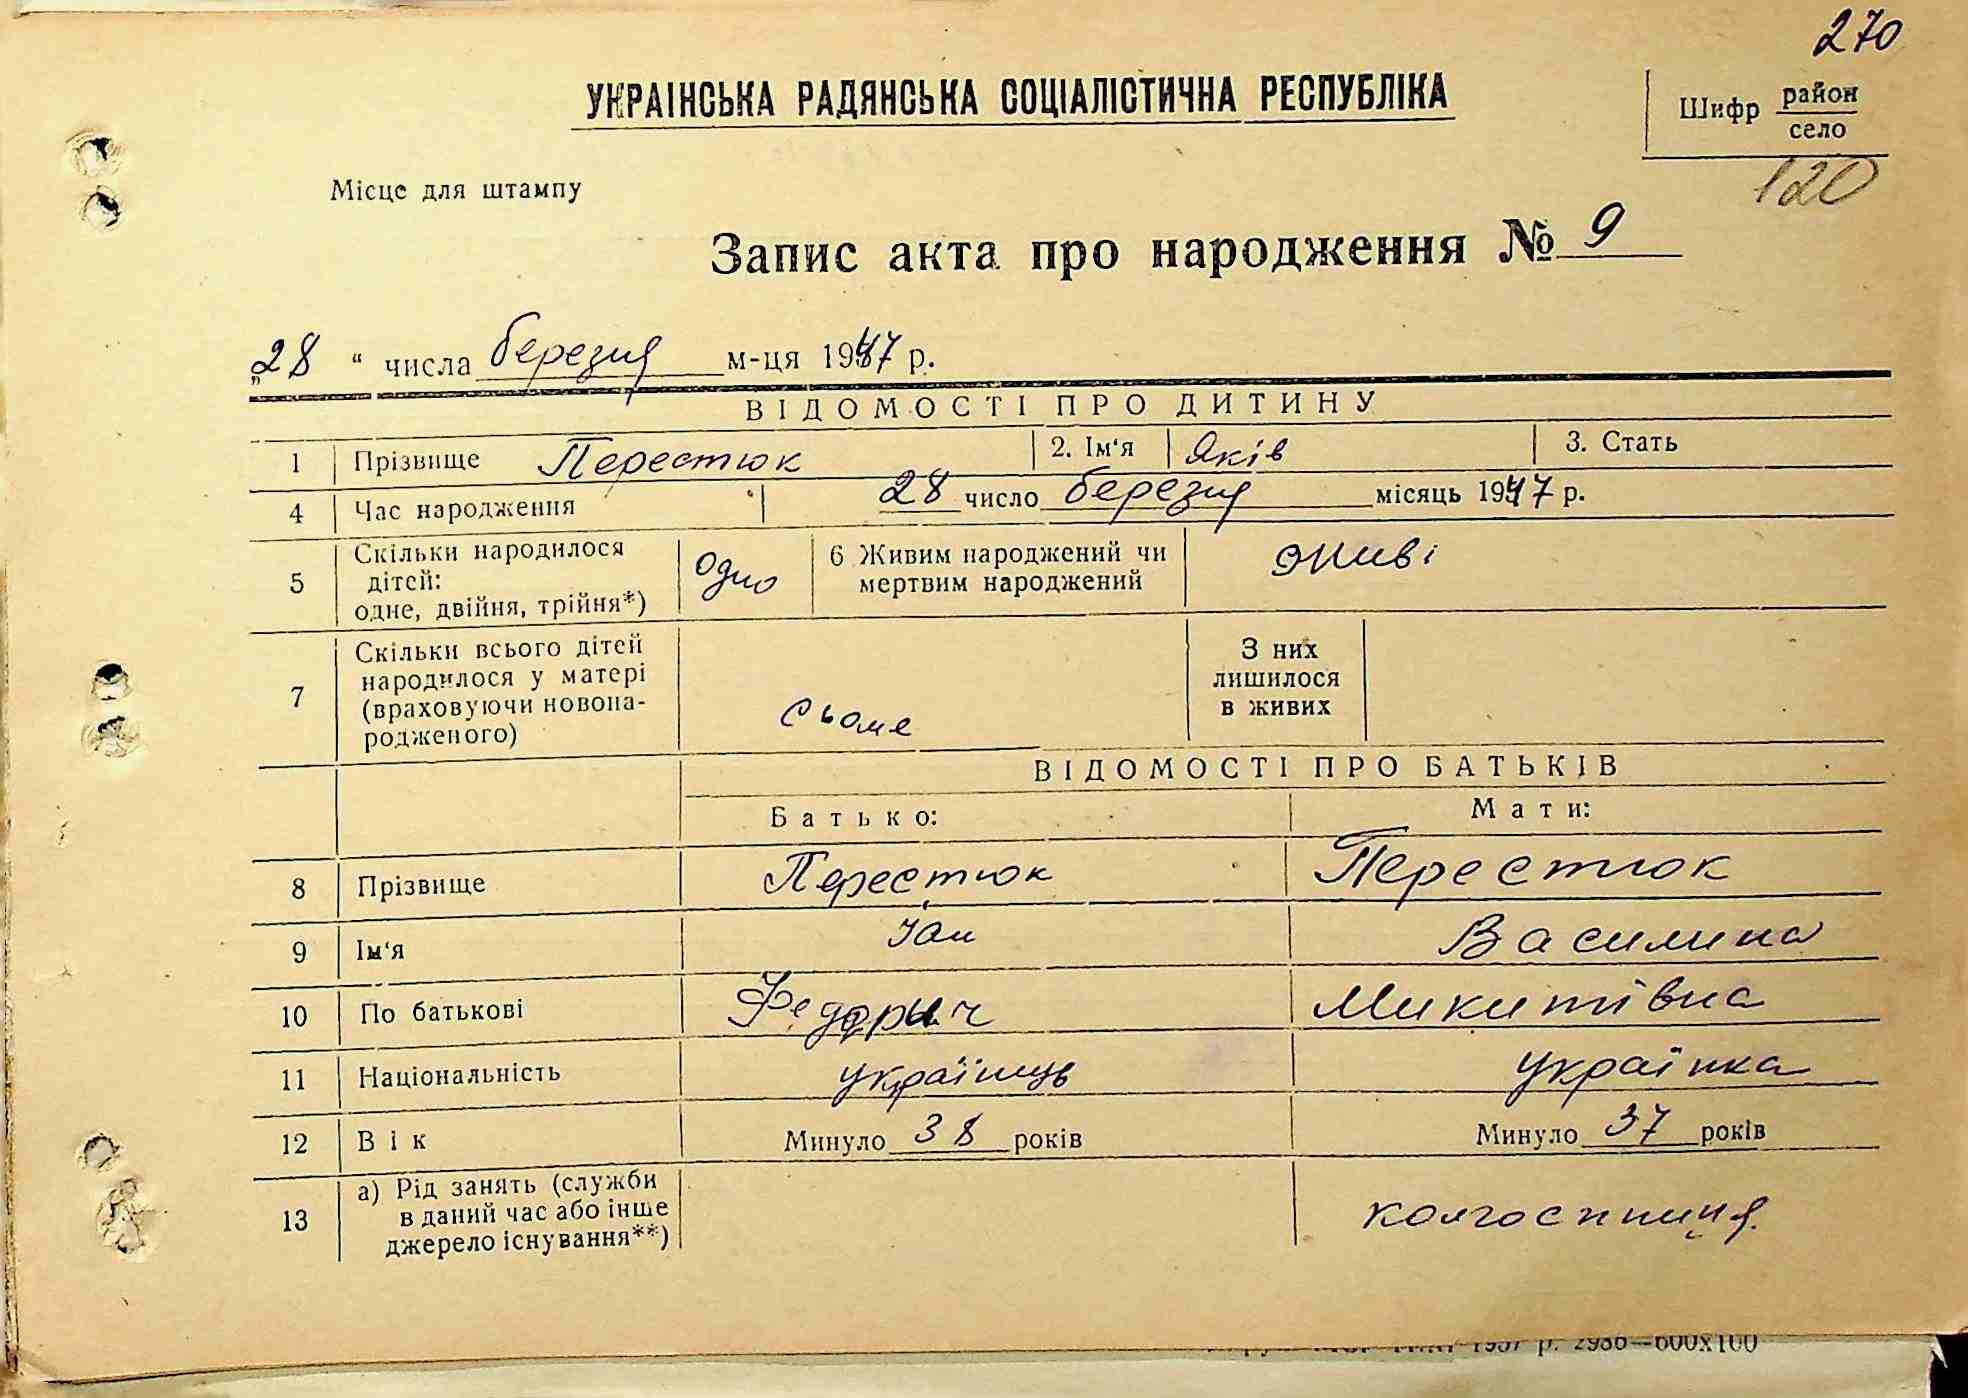 270
УКРАЇНСЬКА РАДЯНСЬКА СОЦІАЛІСТИЧНА РЕСПУБЛІКА
Шифр район
село
120
Місце для штампу
Запис акта про народження № 9
„28 “ числа березня м-ця 1947 р.
ВІДОМОСТІ ПРО ДИТИНУ
1 Прізвище Перестюк 2. Ім‘я Яків 3. Стать
4 Час народження 28 число березня місяць 1947 р.
5 Скільки народилося дітей: одне, двійня, трійня*) одно 6 Живим народжений чи мертвим народжений живі
7 Скільки всього дітей народилося у матері (враховуючи новонародженого) сьоме З них лишилося в живих
ВІДОМОСТІ ПРО БАТЬКІВ
Батько: Мати:
8 Прізвище Перестюк Перестюк
9 Ім‘я Іван Василина
10 По батькові Федорыч Микитівна
11 Національність українць українка
12 Вік Минуло 38 років Минуло 37 років
13 а) Рід занять (служби в даний час або інше джерело існування**) колгоспниця.
1937 р. 2986—600х100